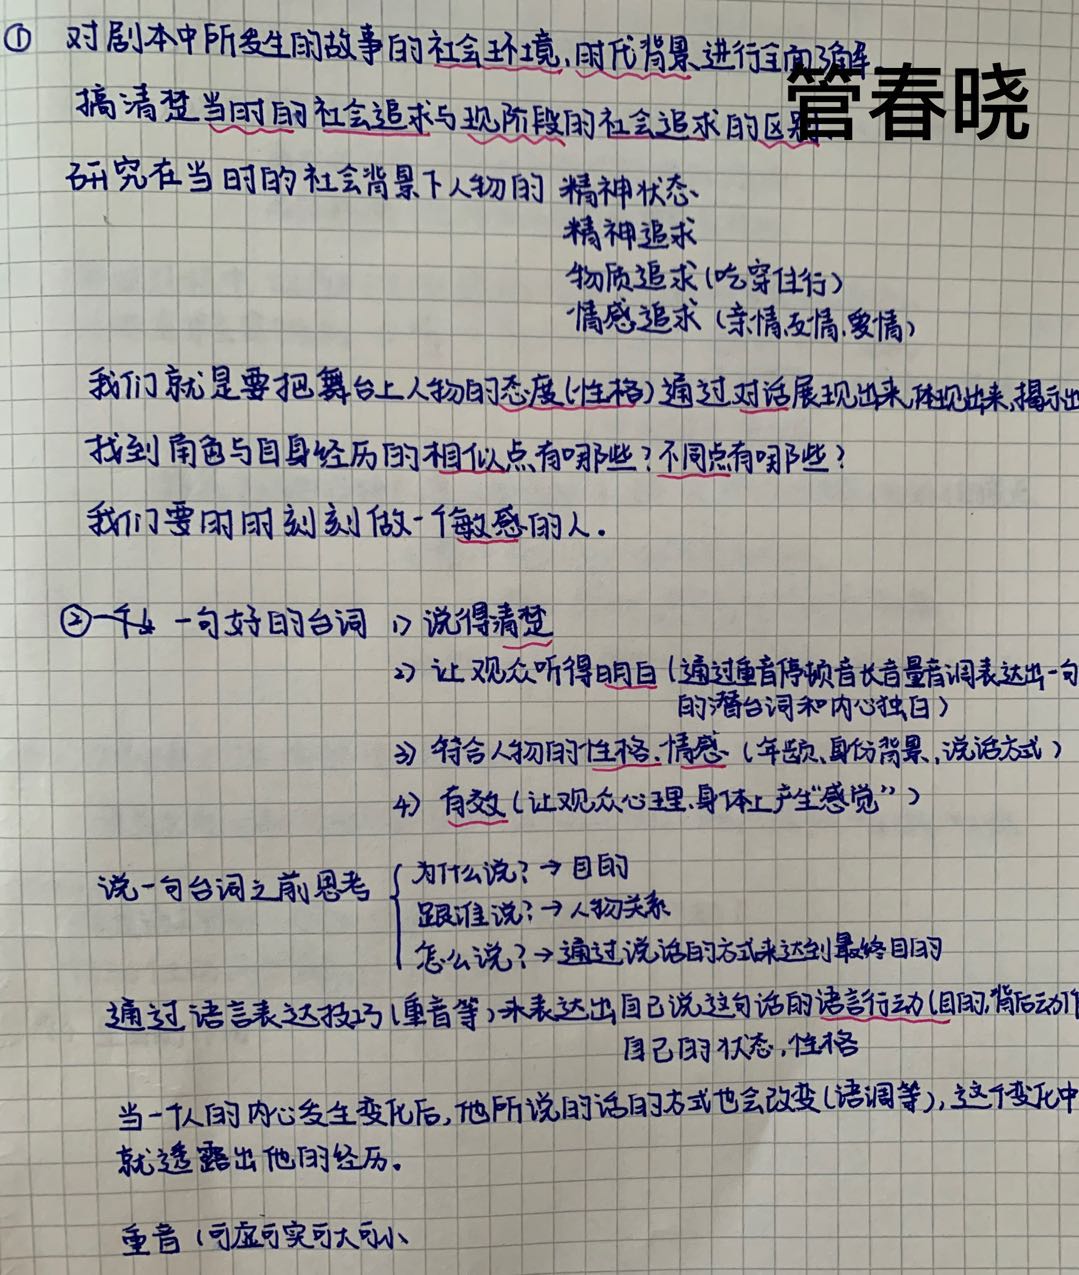 ① 对剧本中所发生的故事的社会环境,时代背景进行全面了解
管春晓
搞清楚当时的社会追求与现阶段的社会追求的区别
研究在当时的社会背景下人物的 精神状态
精神追求
物质追求(吃穿住行)
情感追求(亲情,友情,爱情)
我们就是要把舞台上人物的态度(性格)通过对话展现出来,体现出来,揭示出
找到角色与自身经历的相似点有哪些?不同点有哪些?
我们要时时刻刻做一个敏感的人.
② 一句好的台词 1) 说得清楚
2) 让观众听得明白(通过重音停顿音长音量音调表达出一句
的潜台词和内心独白)
3) 符合人物的性格.情感 (年龄、身份背景,说话方式)
4) 有效(让观众心理.身体上产生"感觉")
说一句台词之前思考 { 为什么说? → 目的
跟谁说? → 人物关系
怎么说? → 通过说话的方式来达到最终目的
通过语言表达技巧(重音等)来表达出自己说这句话的语言行动(目的,背后动
自己的状态,性格
当一个人的内心发生变化后,他所说的话的方式也会改变(语调等),这个变化中
就透露出他的经历.
重音(可虚可实可大可小